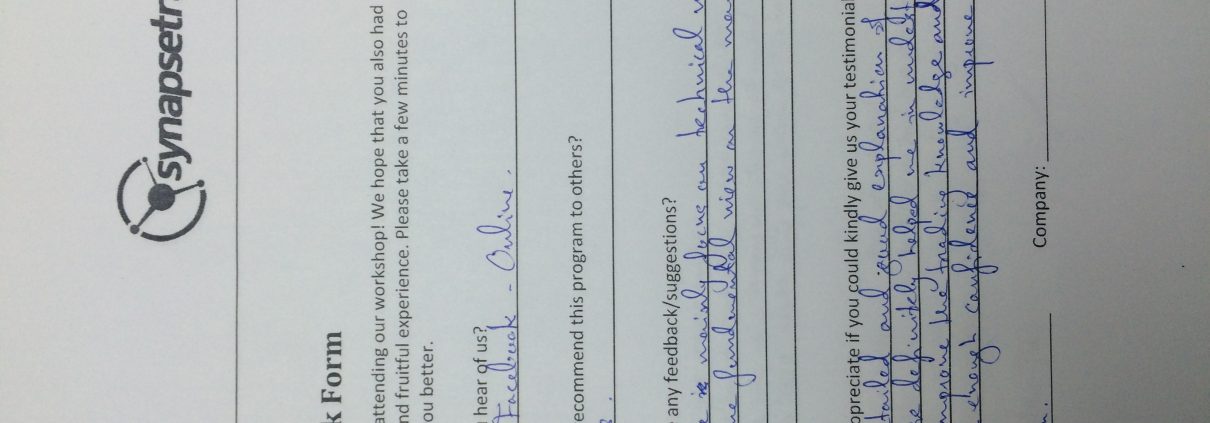 synapsetr
k Form
attending our workshop! We hope that you also had
nd fruitful experience. Please take a few minutes to
ou better.
hear of us?
Facebook - Online.
ecommend this program to others?
any feedback/suggestions?
is mainly focus on technical
fundamental view on the
ppreciate if you could kindly give us your testimonial
tailed and good explanation of
definitely helped me in
mprove the trading knowledge and
enough confidence and improve
Company: